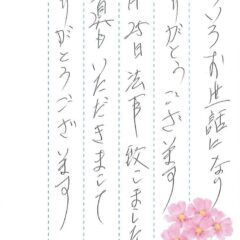 いろお世話になり
りがとうござ
月25日法事致しました
真もいただきまして
りがとうございます